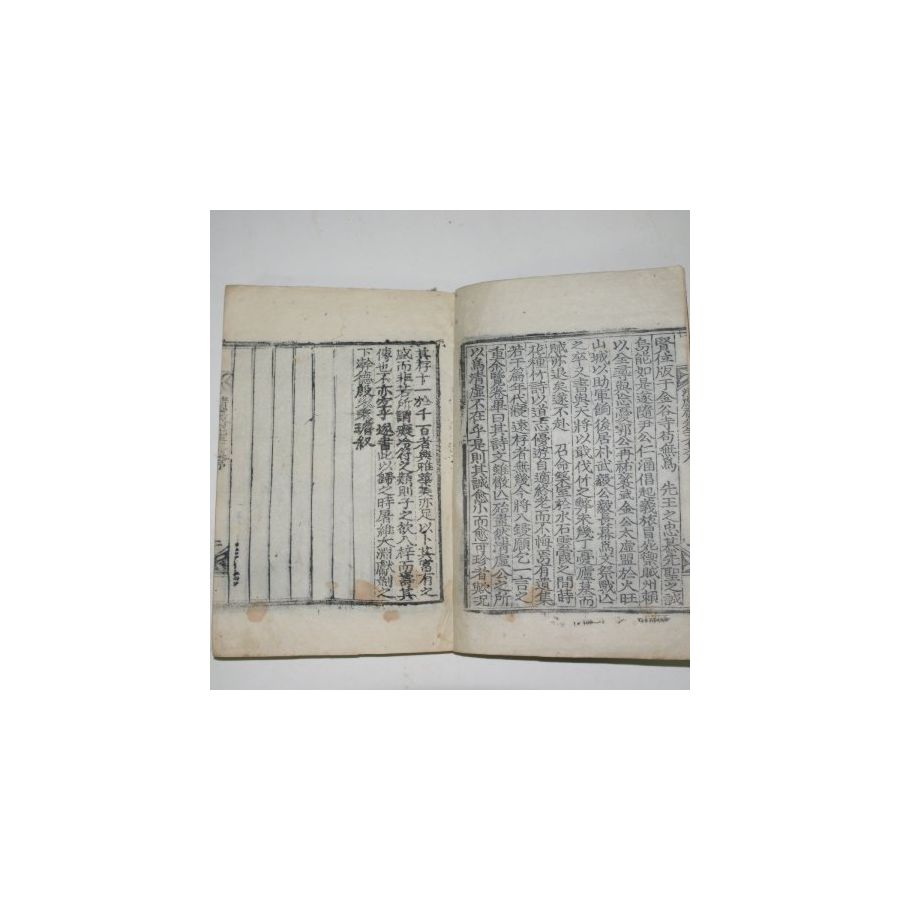 賢位版于金谷寺苟無爲 先王之忠慕先聖之誠
烏能如是遂隨尹公仁涵倡起義旅冒死禦賊州賴
以全蓋與忘憂郭公再祐松菴金公太虛盟於火旺
山城以助軍餉後居朴武毅公毅長幕爲文祭戰亡
之卒又書與大將以戰伐之弊未幾丁憂廬墓而
賊亦退矣遂不赴 召命築室於水石雲霞之間時
花種竹詩以道志優遊自適終老而不悔焉有遺集
若干篇年代寢遠存者無幾今將入鋟願乞一言之
重余覽卒畢曰其詩文雖散亡殆盡然淸虛公之所
以爲淸虛不在乎是則其誠愈小而愈可珍者歟況
其存十一於千百者典雅藻美亦足以卜其富有之
盛而非若所謂癡冷符之類則子之欲入梓而壽其
傳也不亦宜乎遂書此以歸之時屠維大淵獻剡之
下澣德殷 叙